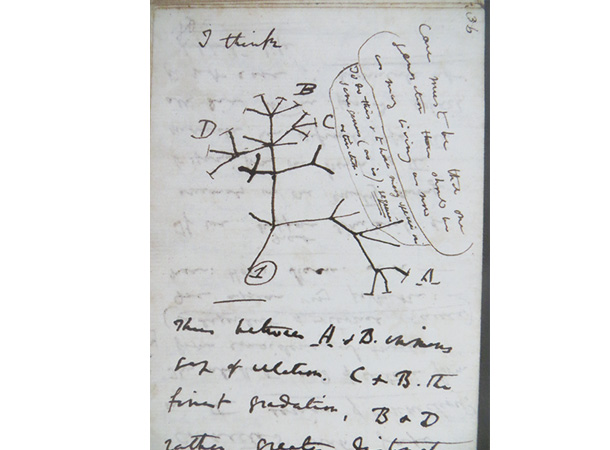 36
I think
Case must be that one
generation then should be
as many living as now
To do this & to have many species in
same genus (as is). requires
extinction.
B
C
D
A
1
Thus between A & B. immense
gap of relation. C & B. the
finest gradation, B & D
rather greater distinct